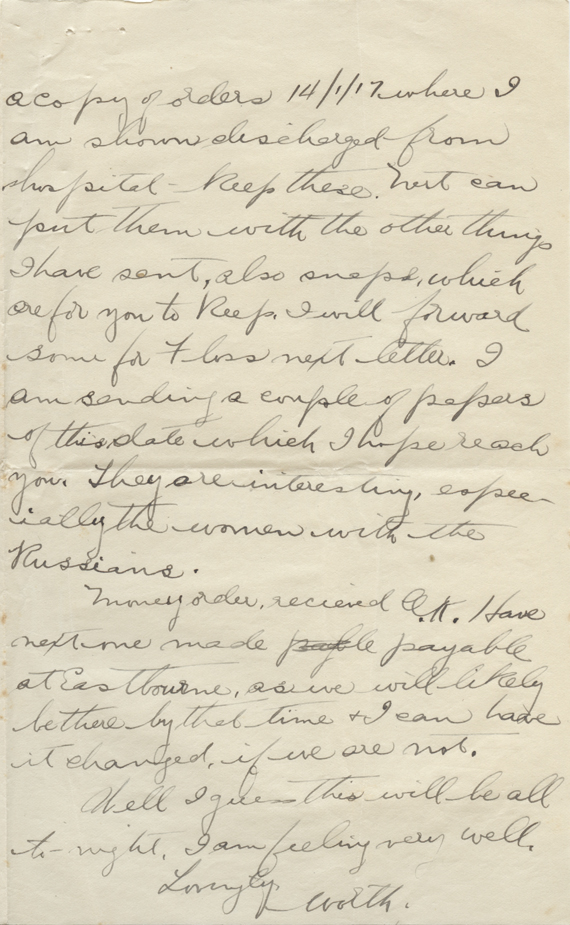 a copy of orders 14/1/17 where I
am shown discharged from
hospital - Keep these. can
put them with the other things
I have sent, also snaps, which
are for you to Keep. I will forward
some for Floss next letter. I
am sending a couple of papers
of this date which I hope reach
you. They are interesting, espec-
ially the women with the
Russians.
Money order, recieved O.K. Have
next one made payable
at Eastbourne, as we will likely
be there by that time & I can have
it changed, if we are not.
Well I guess this will be all
to-night. I am feeling very well.
Lovingly
Worth.